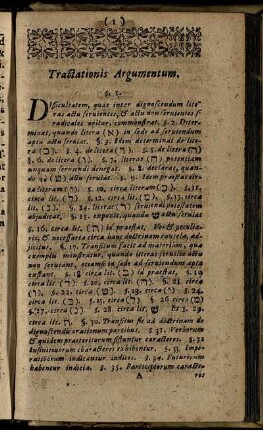 ( 1 )
Tractationis Argumentum.
§. 1.
Difficultatem, quae inter dignoscendum lite-
ras actu servientes, & actu non servientes s.
radicales oritur, commonstrat. §. 2. Deter-
minat, quando litera (א) in sede ad serviendum
apta actu serviat. §. 3. Idem determinat de lite-
ra (ב) §. 4. de litera ( ) §. 5. de litera (ה)
§. 6. de litera (ו) §. 7. literas potentiam
unquam serviendi denegat. §. 8. declarat, quan-
do actu serviat. §. 9. Idem praestat
§. 10. circa literam §. 11.
circa lit. §. 12. circa lit. §. 13. circa lit.
§. 14. literae serviendi potestatem
abjudicat. §. 15. exponit, quando ש actu serviat
§. 16. circa lit. (ת) id praestat, Vti & peculia-
ris, & necessaria circa hanc doctrinam cautela, ad-
jicitur. §. 17. Transitum facit ad materiam, qua
exemplis monstratur, quando literae serviles actu
non serviant, etiamsi in sede ad serviendum apta
extant. §. 18 circa lit. id praestat, §. 19
circa lit. §. 20. circa lit. §. 21. circa lit.
§. 22. circa lit. §. 23. circa lit. §. 24.
circa lit. §. 25. circa lit. §. 26 circa lit.
§. 27. circa lit. §. 28 circa lit. Et §. 29.
circa lit. ת. §. 30. Transitus fit ad doctrinam de
dignoscendis orationum partibus. §. 31. Verborum
& quidem praeteritorum sistuntur characteres. §. 32
Infinitivorum characteres exhibentur. §. 33. Impe-
rativorum indicantur indices. §. 34. Futurorum
habentur indicia. §. 35. Participiorum characte-
A
res